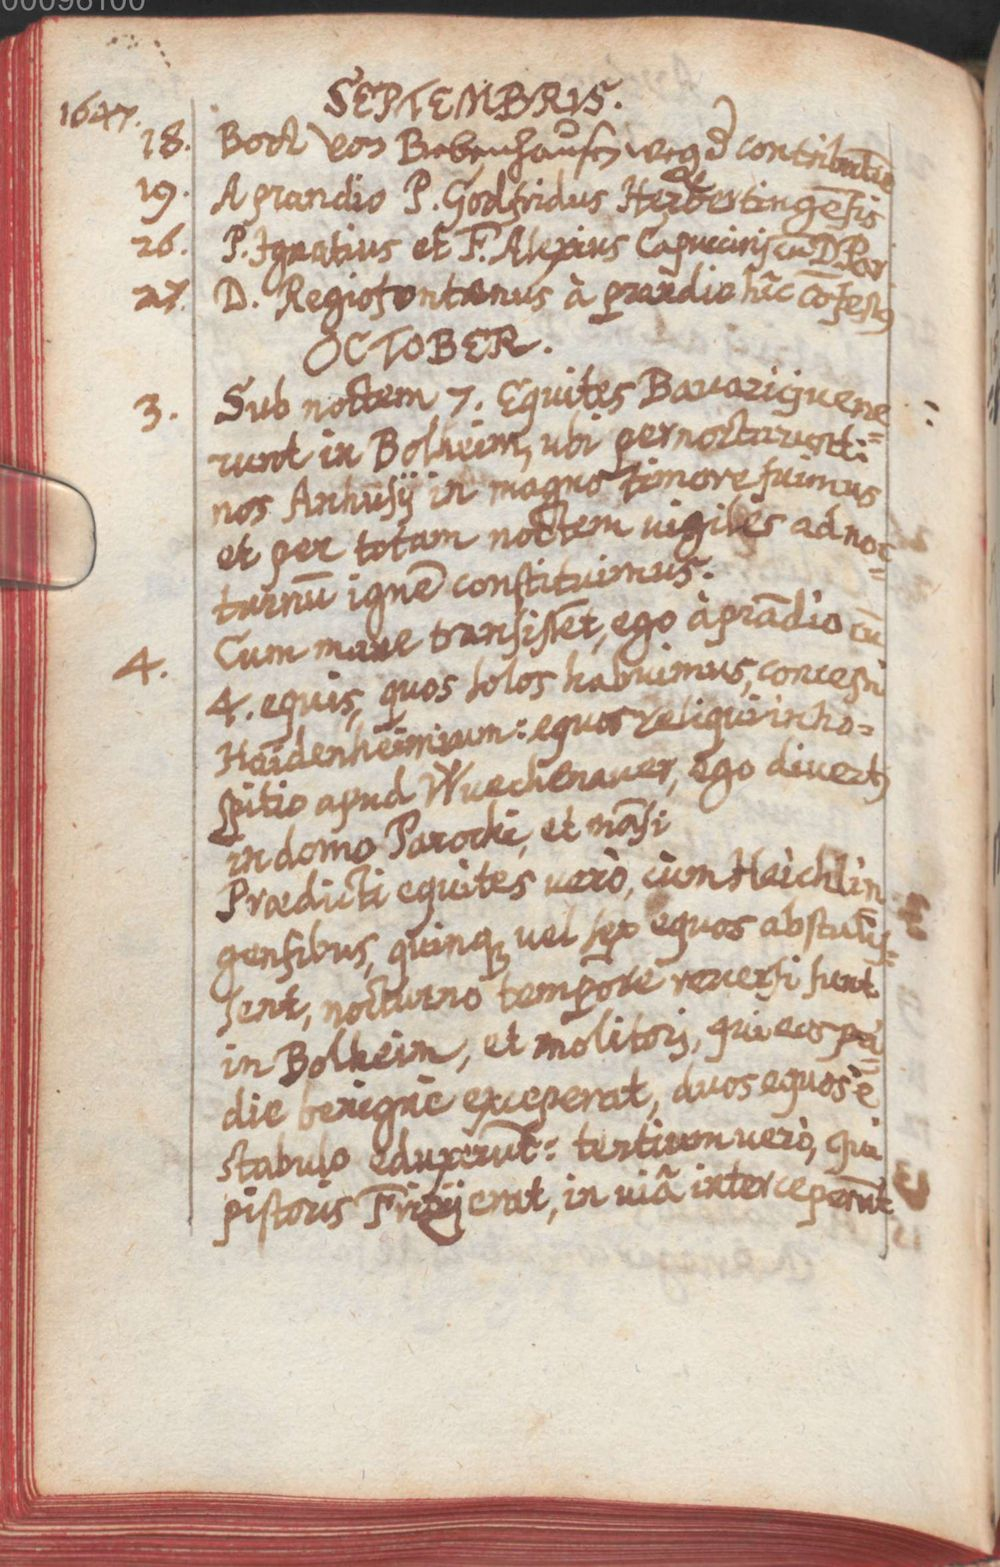 00096100
SEPTEMBRIS.
1647.
18. Bott von Bebenhausen weg d contributiō
19. A prandio P. Godfridus Herbertingēsis
26. P. Ignatius et F. Alexius Capucinis cū D. Par
27. D. Regiofontanus à prandio hīc cōfess9
OCTOBER.
3. Sub noctem 7. Equites Bavarici vene=
runt in Bolheim, ubi pernoctarunt:
nos Anhusij in magno timore fuimus
et per totam noctem vigiles ad noc=
turnū ignē constituimus.
4. Cum mane transissēt, ego à prādio cū
4. equis, quos solos habuimus, concessi
Haidenheimium: equos reliqui in ho=
spitio apud Wuechenauer, ego divert9
in domo Parochi, et māsi
Prædicti equites verò, cùm Haichlin
gensibus, quinq3 vel sex equos abstulis=
sent, nocturno tempore reversi sunt
in Bolheim, et molitoris, qui eos pri=
die benignè exceperat, duos equos è
stabulo eduxerūt: tertium verò, qui
pistoris Fritzij erat, in viâ interceperūt